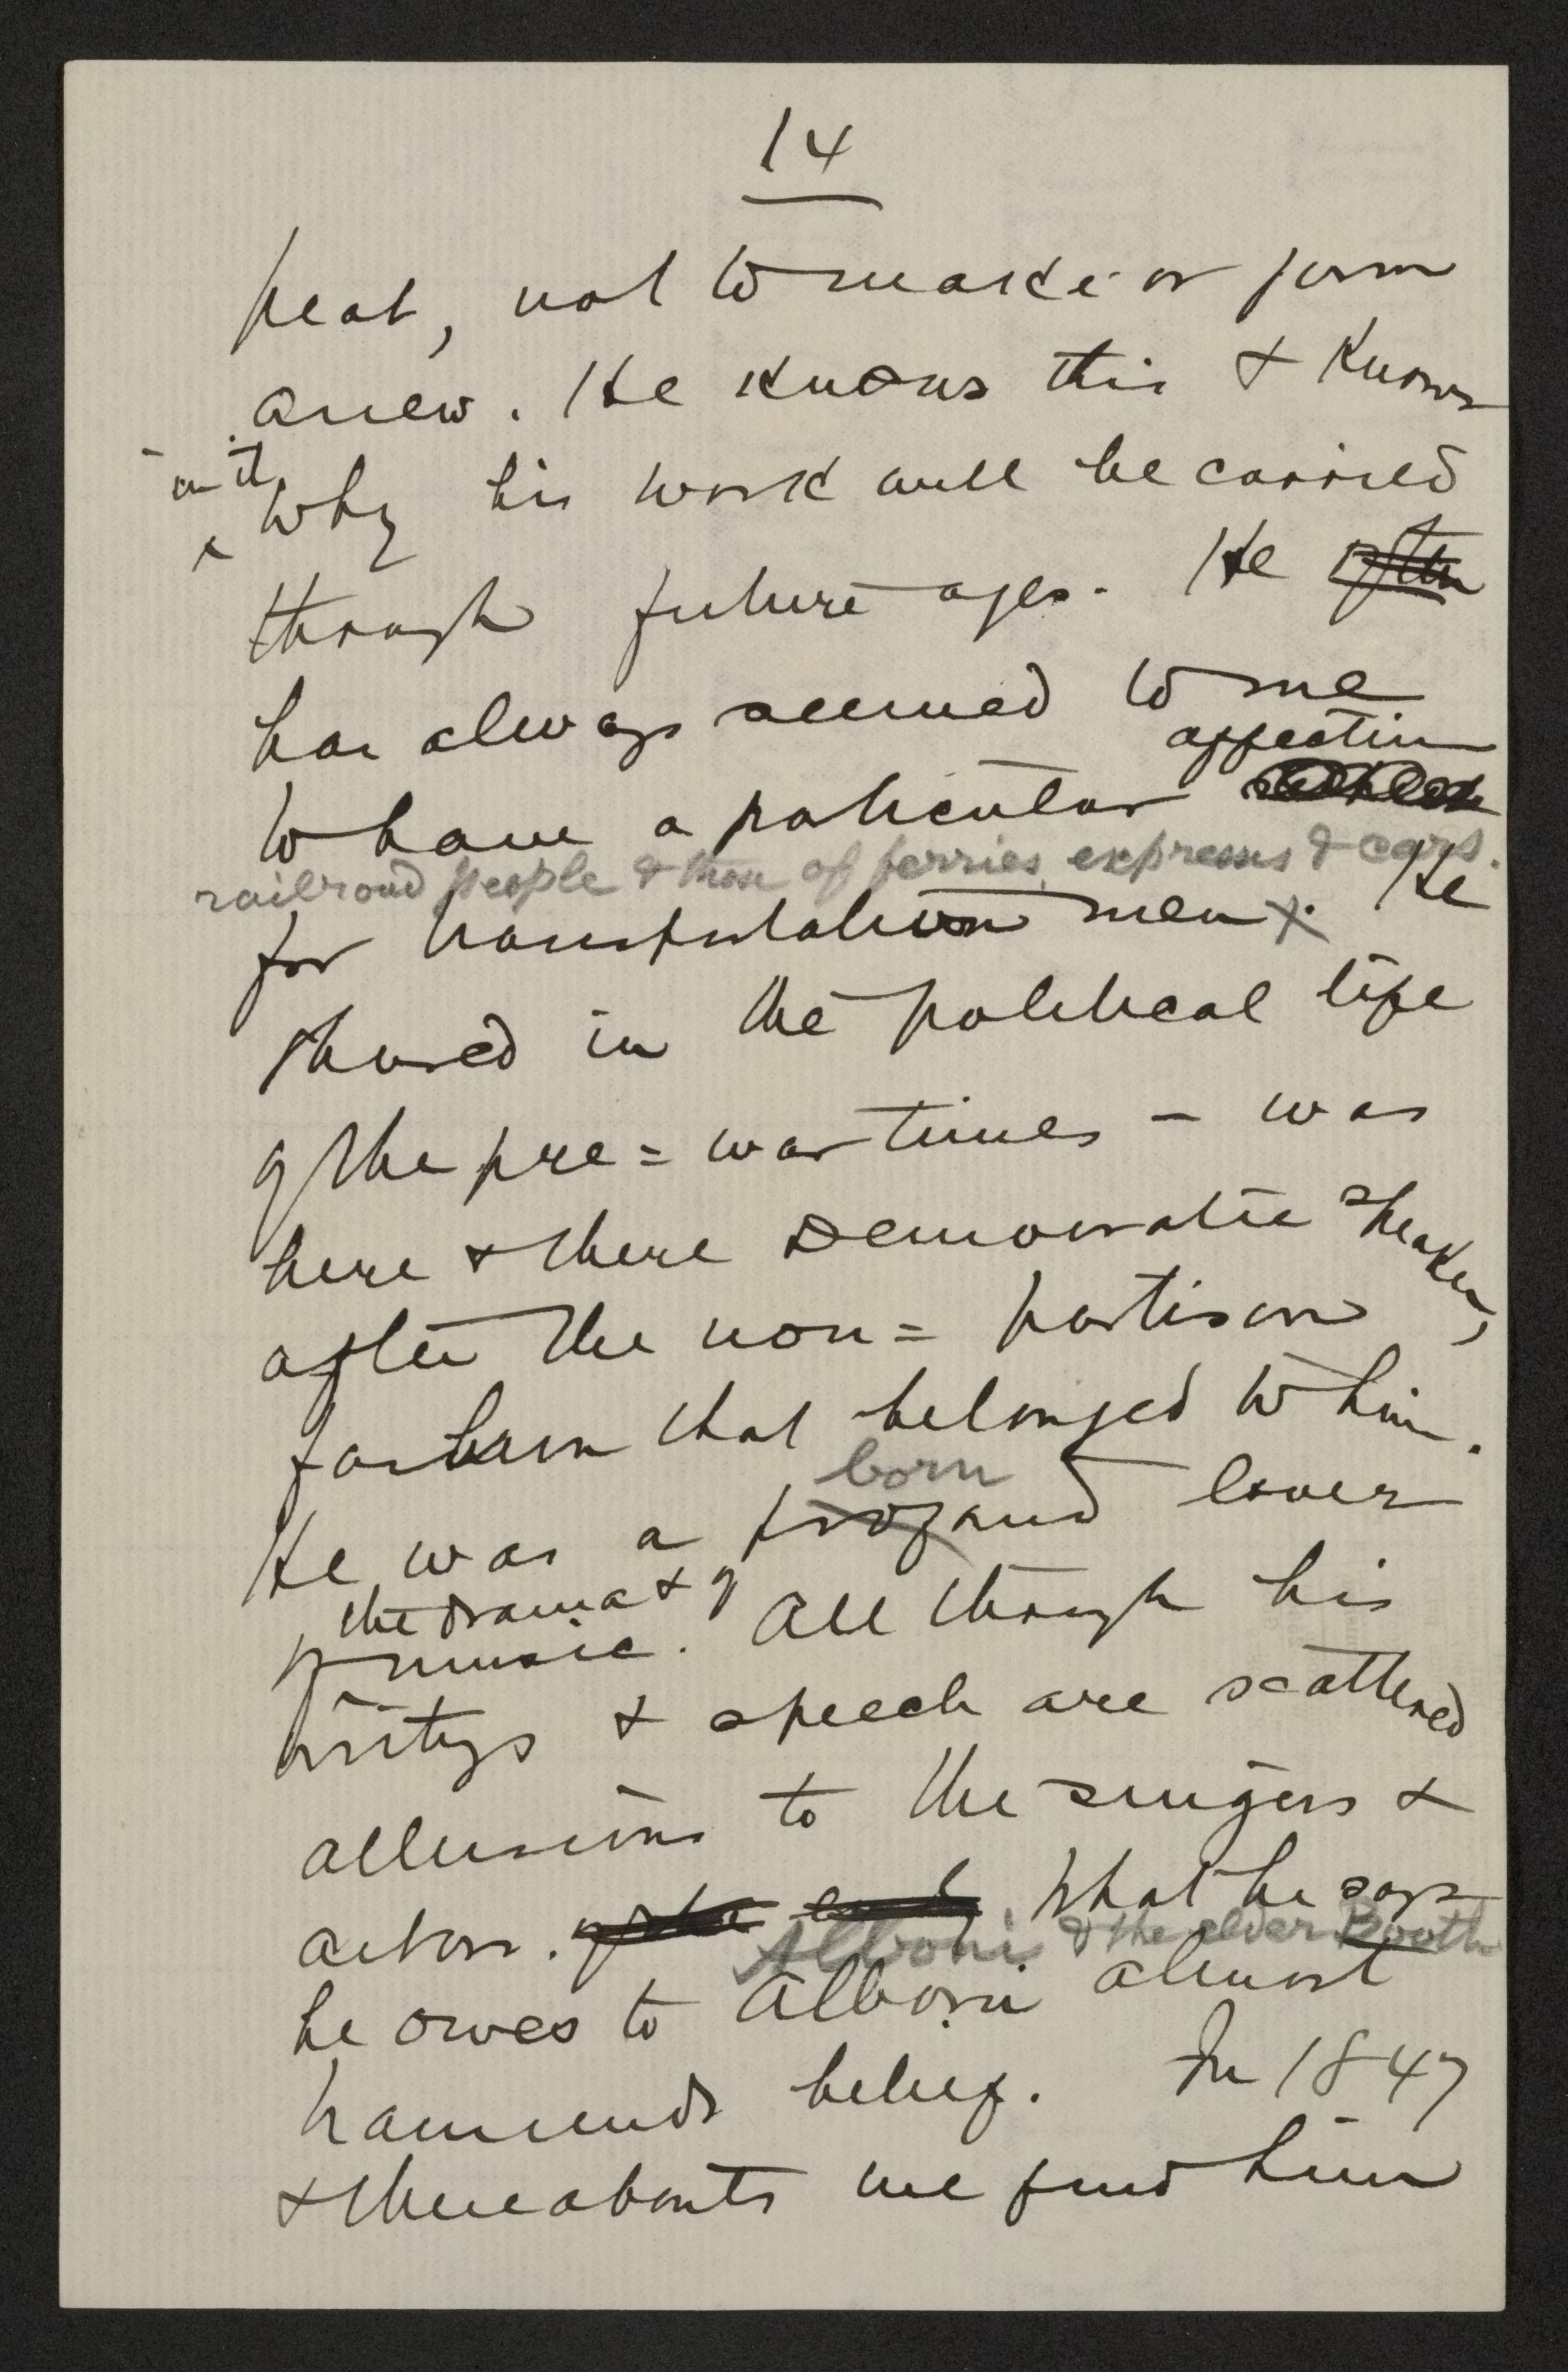 14
peat, not to make or form
anew. He knows this & knows
with
why his work will be carried
through future ages. He often
has always seemed to me
affection
to have a particular
railroad people & those of ferries, expresses & cars.
for transportation men. He
shared in the political life
of the pre=war times — was
here & there Democratic speaker,
after the non=partisan
fashion that belonged to him.
born
He was a profound lover
the drama & of
of music. All through his
writings & speech are scattered
allusions to the singers &
actors. What he says
Alboni & the elder Booth
he owes to Alboni almost
transcends belief. In 1847
& thereabouts we find him